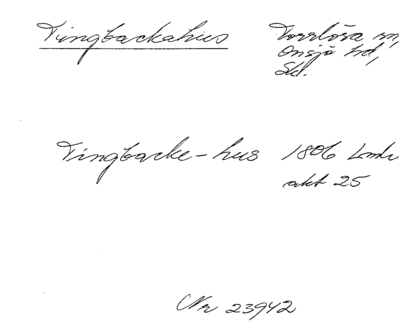 Tingbackahus Torrlösa sn,
Onsjö hd,
Skl.
Tingbacke-hus 1806 Lmk
akt 25
Nr 23942